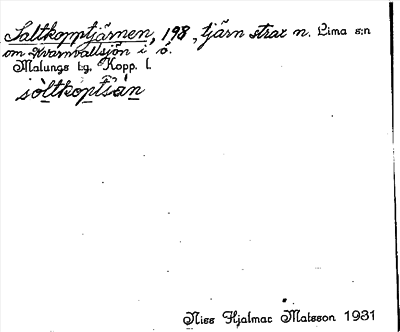 Saltkopptjärnen, 198, tjärn strax n. Lima s:n
om Kvarnvallsjön i ö.
Malungs tg, Kopp. l.
Niss Hjalmar Matsson 1931